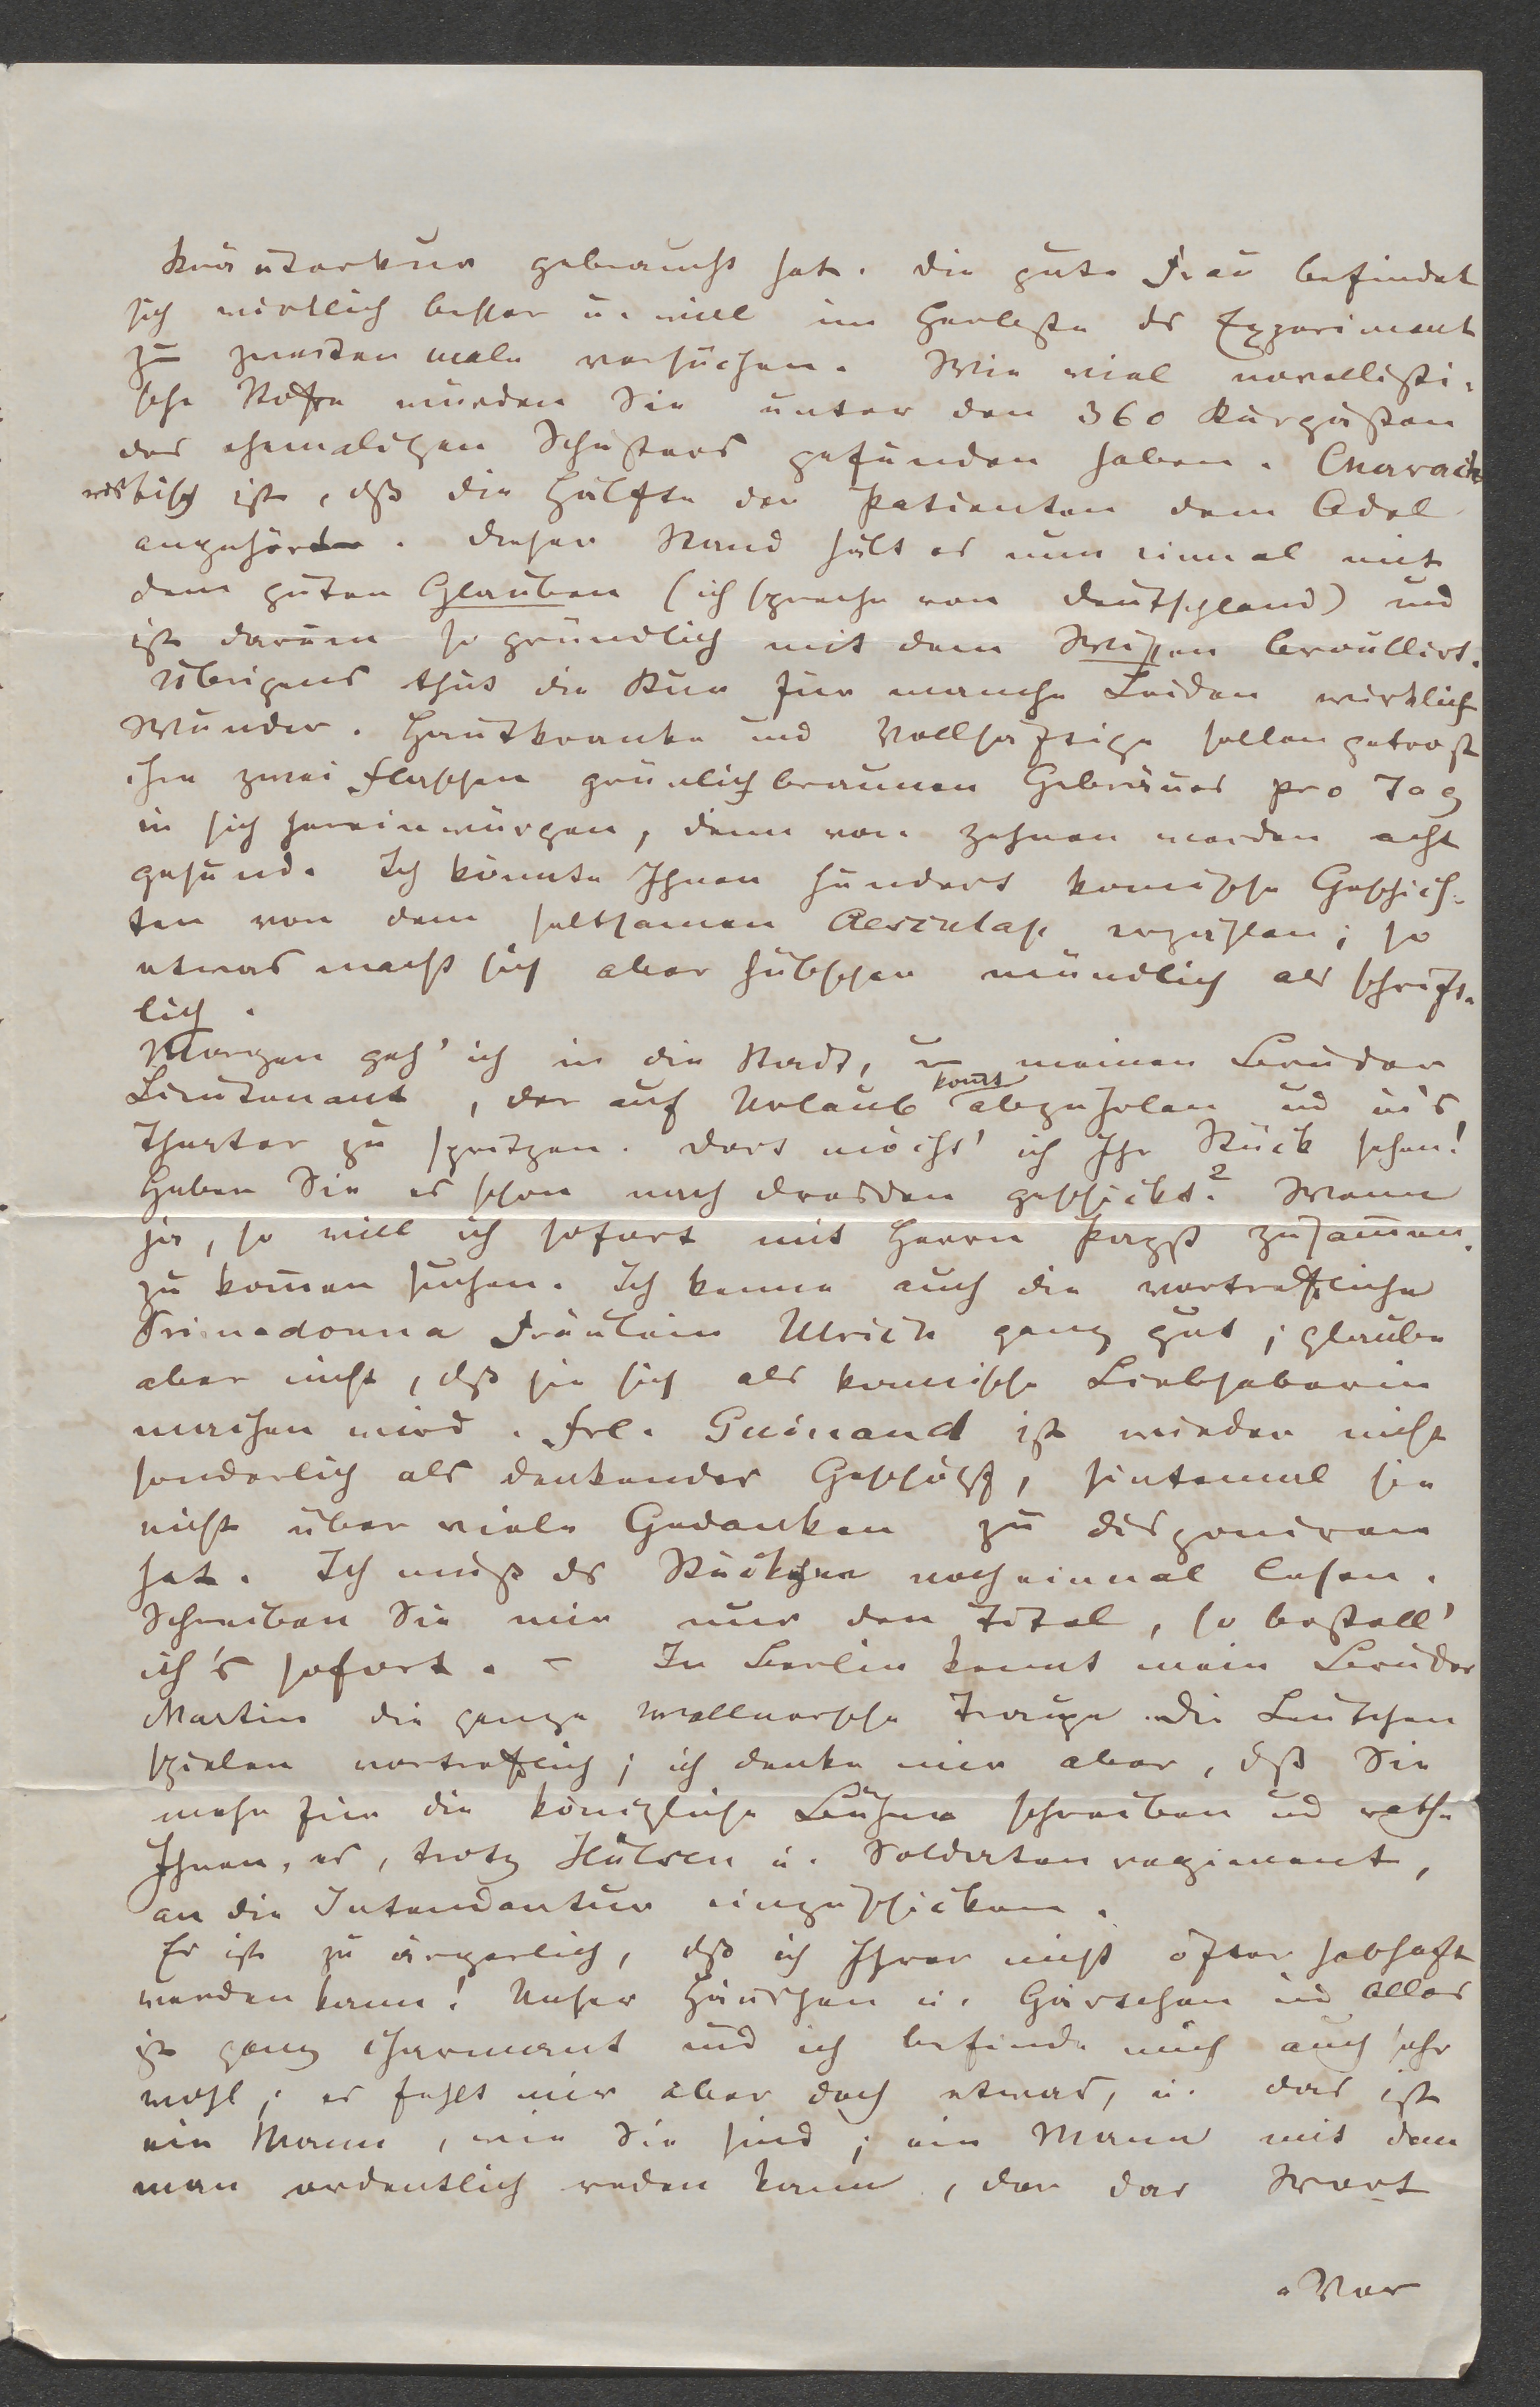 Kräuterkur gebraucht hat. Die gute Frau befindet
sich wirklich besser u. will im Herbste ds Experiment
zu zweiten male versuchen. Wie viel novellisti-
sche Stoffe würden Sie unter den 360 Kurgästen
des ehemaligen Schusters gefunden haben. Charack
teristisch ist, dß die Hälfte der Patienten dem Adel
angehörte. Dieser Stand hält es nun einmal mit
dem guten Glauben (ich spreche von Deutschland) und
ist darum so gründlich mit dem Wissen brouillirt.
Übrigens thut die Kur für manche Leiden wirklich
Wunder. Hautkranke und Vollsaftige sollen getrost
ihre zwei Flaschen grünlichbraunen Gebräues pro Tag
in sich hereinwürgen, denn von zehnen werden acht
gesund. Ich könnte Ihnen hundert komische Geschich-
ten von dem seltsamen Aesculap erzählen; so
etwas macht sich aber hübscher mündlich als schrift-
lich.
Morgen geh' ich in die Stadt, um meinen Bruder
Lieutenant, der auf Urlaub komt abzuholen und in's
Theater zu spritzen. Dort möcht' ich Ihr Stück sehen!
Haben Sie es schon nach Dresden geschickt? Wenn
ja, so will ich sofort mit Herrn Papst zusam̄en
zu kom̄en suchen. Ich kenne auch die vortreffliche
Primadonna Fräulein Ulrich ganz gut; glaube
aber nicht, dß sie sich als komische Liebhaberin
machen wird. Frl. Guinand ist wieder nicht
sonderlich als denkendes Geschöpf, sintemal sie
nicht über viele Gedanken zu disponiren
hat. Ich muß ds Stückchen noch einmal lesen.
Schreiben Sie mir nur den Titel, so bestell'
ich's sofort. – In Berlin kennt mein Bruder
Martin die ganze Wallnersche Truppe. Die Leutchen
spielen vortrefflich; ich denke mir aber, dß Sie
mehr für die königliche Bühne schreiben und rathe
Ihnen, es, trotz Hülsen u. Soldatenregiment,
an die Intendantur einzuschicken.
Es ist zu ärgerlich, dß ich Ihrer nicht öfter habhaft
werden kann! Unser Häuschen u. Gärtchen und Alles
ist ganz charmant und ich befinde mich auch sehr
wohl; es fehlt mir aber doch etwas, u. das ist
ein Mann, wie Sie sind; ein Mann mit dem
man ordentlich reden kann, der das Wort